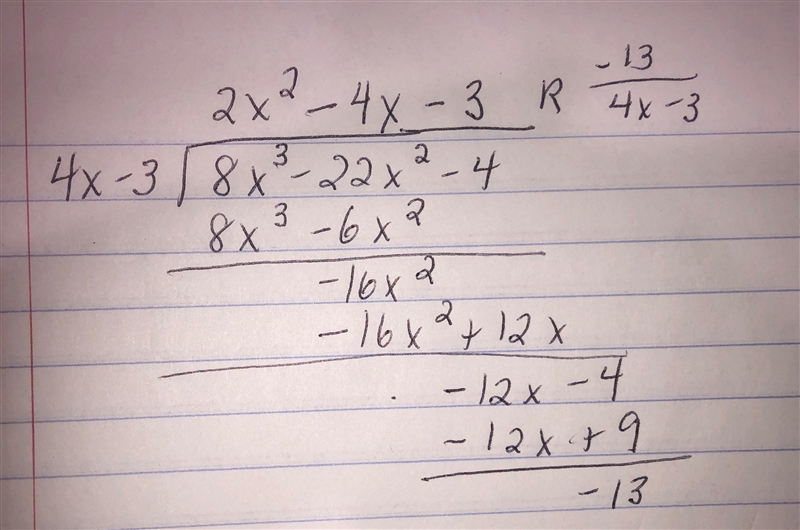 2x² - 4x - 3 R -13/(4x - 3)
4x - 3 ⟌ 8x³ - 22x² - 4
8x³ - 6x²
-16x²
-16x² + 12x
-12x - 4
-12x + 9
-13